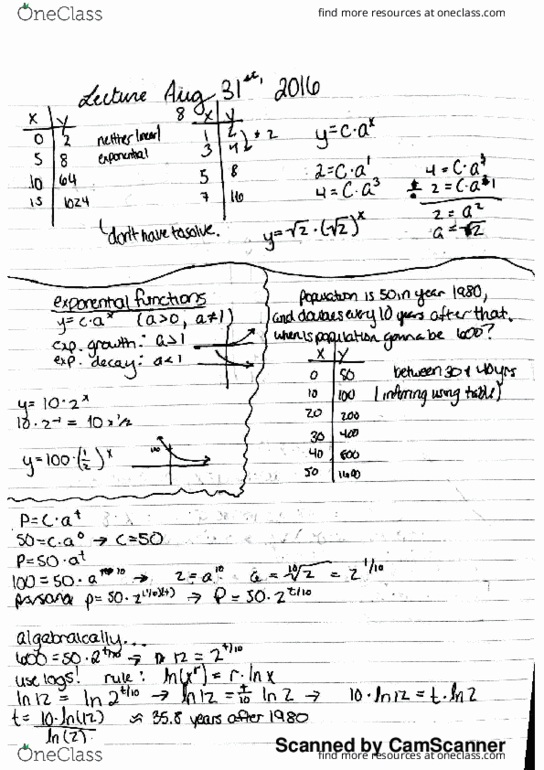 OneClass
find more resources at oneclass.com
Lecture Aug 31st, 2016
x | y
0 | 2
5 | 8
10 | 64
15 | 1024
neither linear/
exponential
8
x | y
1 | 2
3 | 4
5 | 8
7 | 16
y=C·a^x
2=C·a^1
4=C·a^3
2=C·a^1
2=a^2
a=√2
don't have to solve.
y=√2·(√2)^x
exponential functions
y=C·a^x (a>0, a≠1)
exp. growth: a>1
exp. decay: a<1
y=10·2^x
10·2^-1 = 10×1/2
y=100·(1/2)^x
100
population is 50 in year 1980,
and doubles every 10 years after that.
when is population gonna be 600?
x | y
0 | 50
10 | 100
20 | 200
30 | 400
40 | 800
50 | 1600
between 30 & 40 yrs
(inferring using table)
P=C·a^t
50=C·a^0 → C=50
P=50·a^t
100=50·a^10 → 2=a^10 a=¹⁰√2 = 2^1/10
P=50·2^(1/10)(t) → P=50·2^t/10
algebraically...
600=50·2^t/10 → 12=2^t/10
use logs! rule: ln(x^r)=r·ln x
ln12 = ln 2^t/10 → ln12=t/10 ln 2 → 10·ln12=t·ln2
t= 10·ln(12)/ln(2) ≈ 35.8 years after 1980
Scanned by CamScanner
OneClass
find more resources at oneclass.com